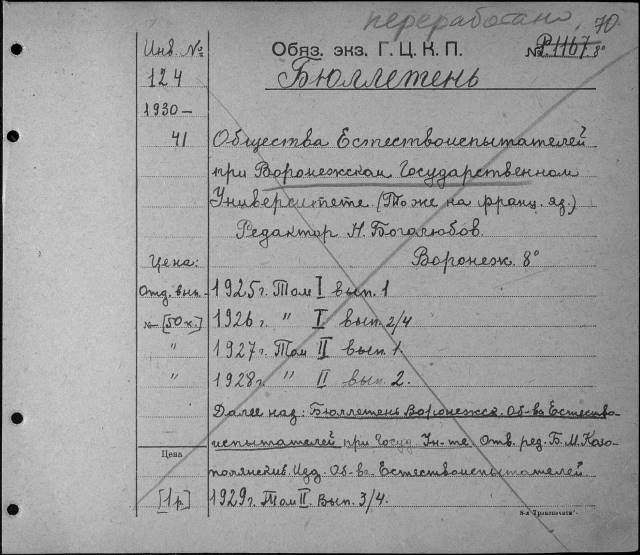 переработано 70
Инв. №
Обяз. экз. Г. Ц. К. П.
№ Р1167 8°
124
Бюллетень
1930-
41
Общества Естествоиспытателей
при Воронежском Государственном
Университете. (То же на франц. яз.)
Редактор Н. Боголюбов.
Цена:
Воронеж. 8°
Отд. вып.
1925г. Том I вып. 1
№- [50к.]
1926г. " I вып. 2/4
" 1927г. Том II вып. 1.
" 1928г. " II вып. 2.
Далее наз: Бюллетень Воронежск. Об-ва Естество-
испытателей при Госуд. Ун-те. Отв. ред. Б. М. Козо-
Цена
полянский. Изд. Об-ва Естествоиспытателей.
[1р.]
1929г. Том II. Вып. 3/4.